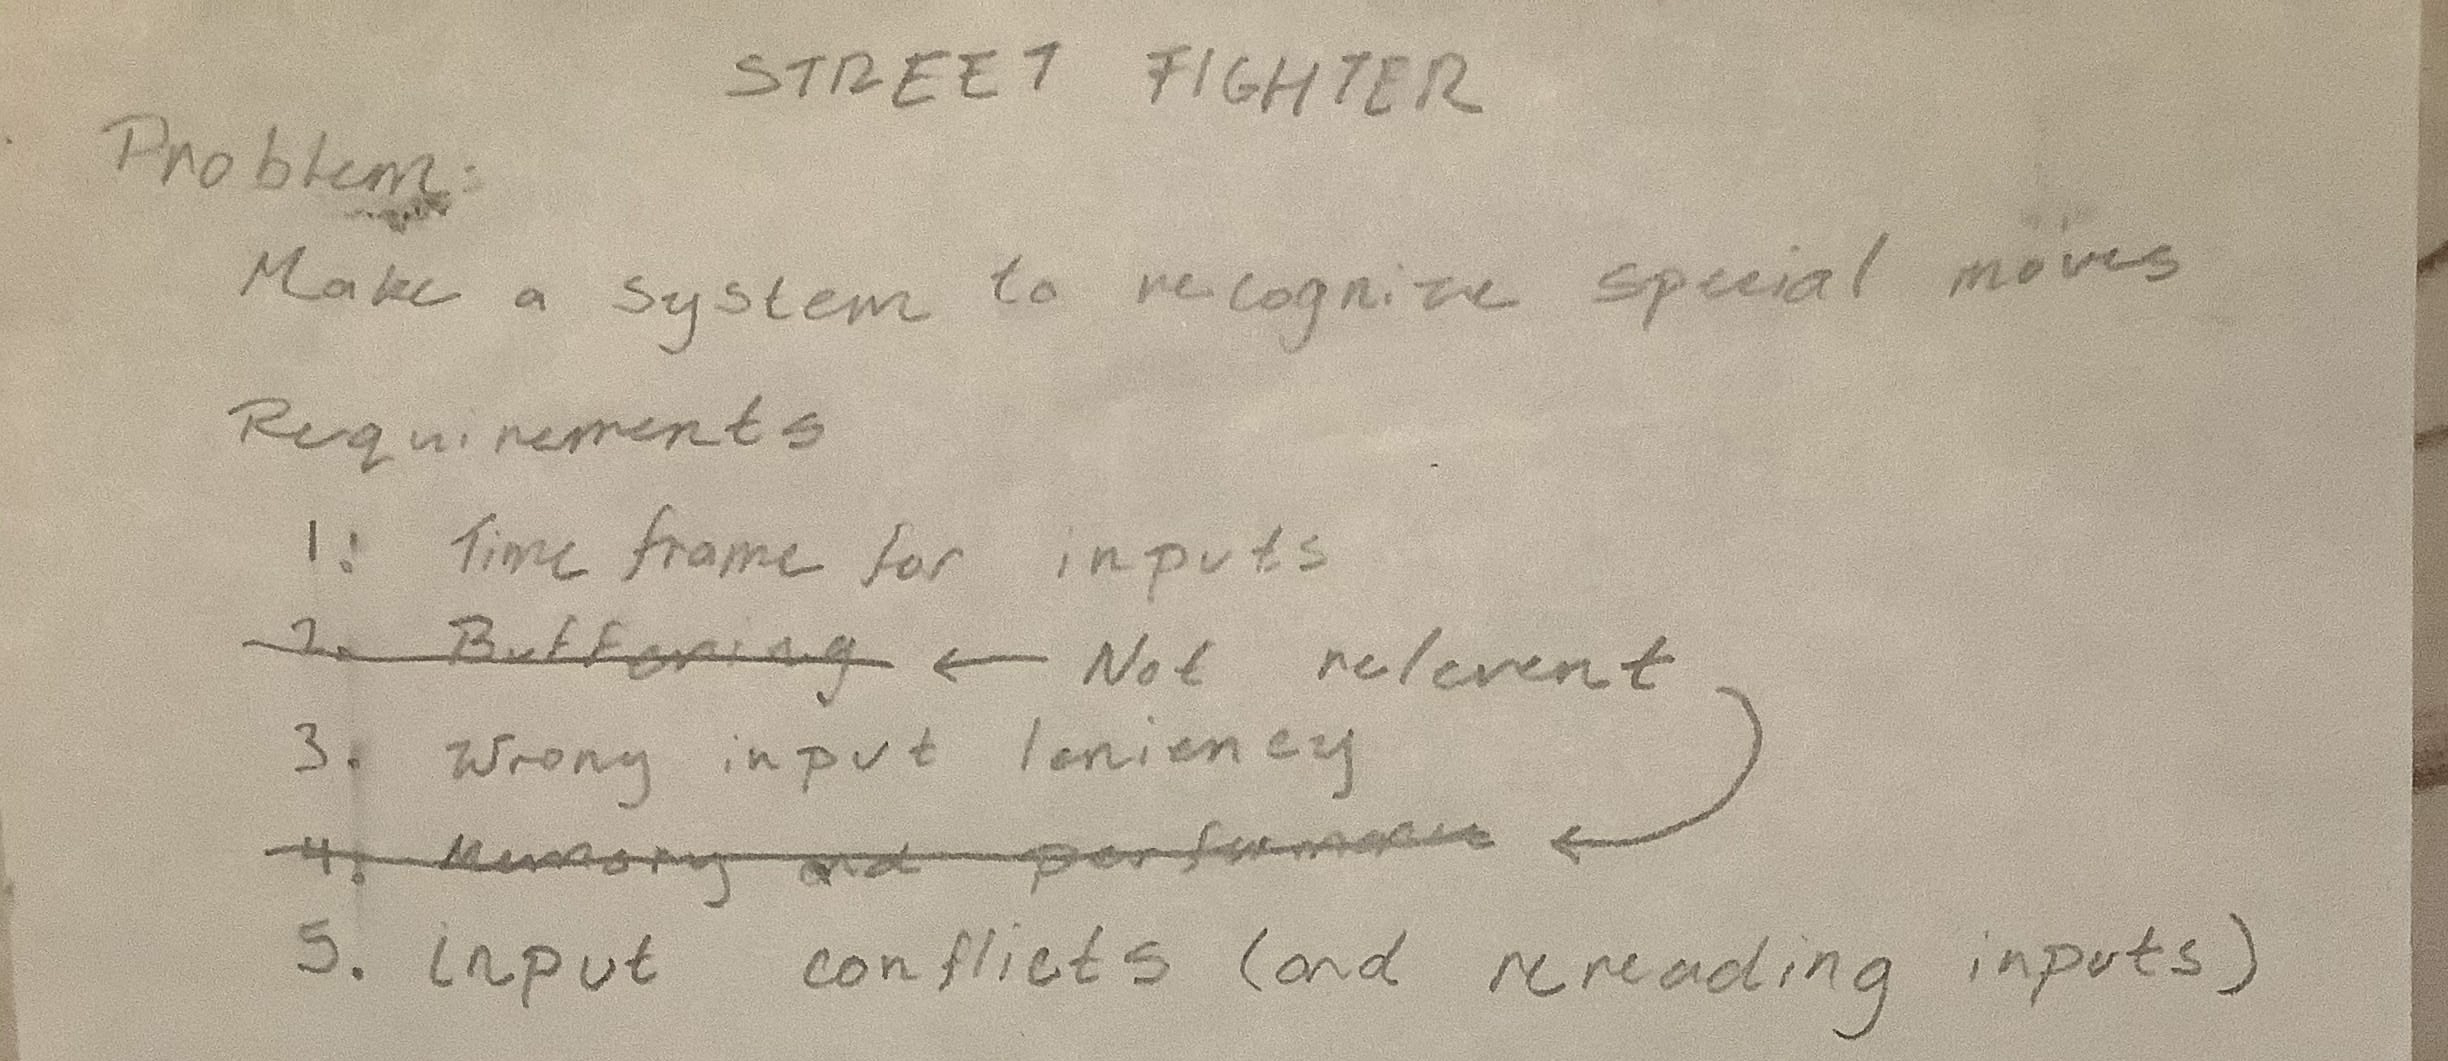 STREET FIGHTER
Problem:
Make a system to recognize special moves
Requirements
1: Time frame for inputs
2. Buffering ← Not relevent
3. Wrong input leniency
4: Memory and performance ←
5. input conflicts (and rereading inputs)